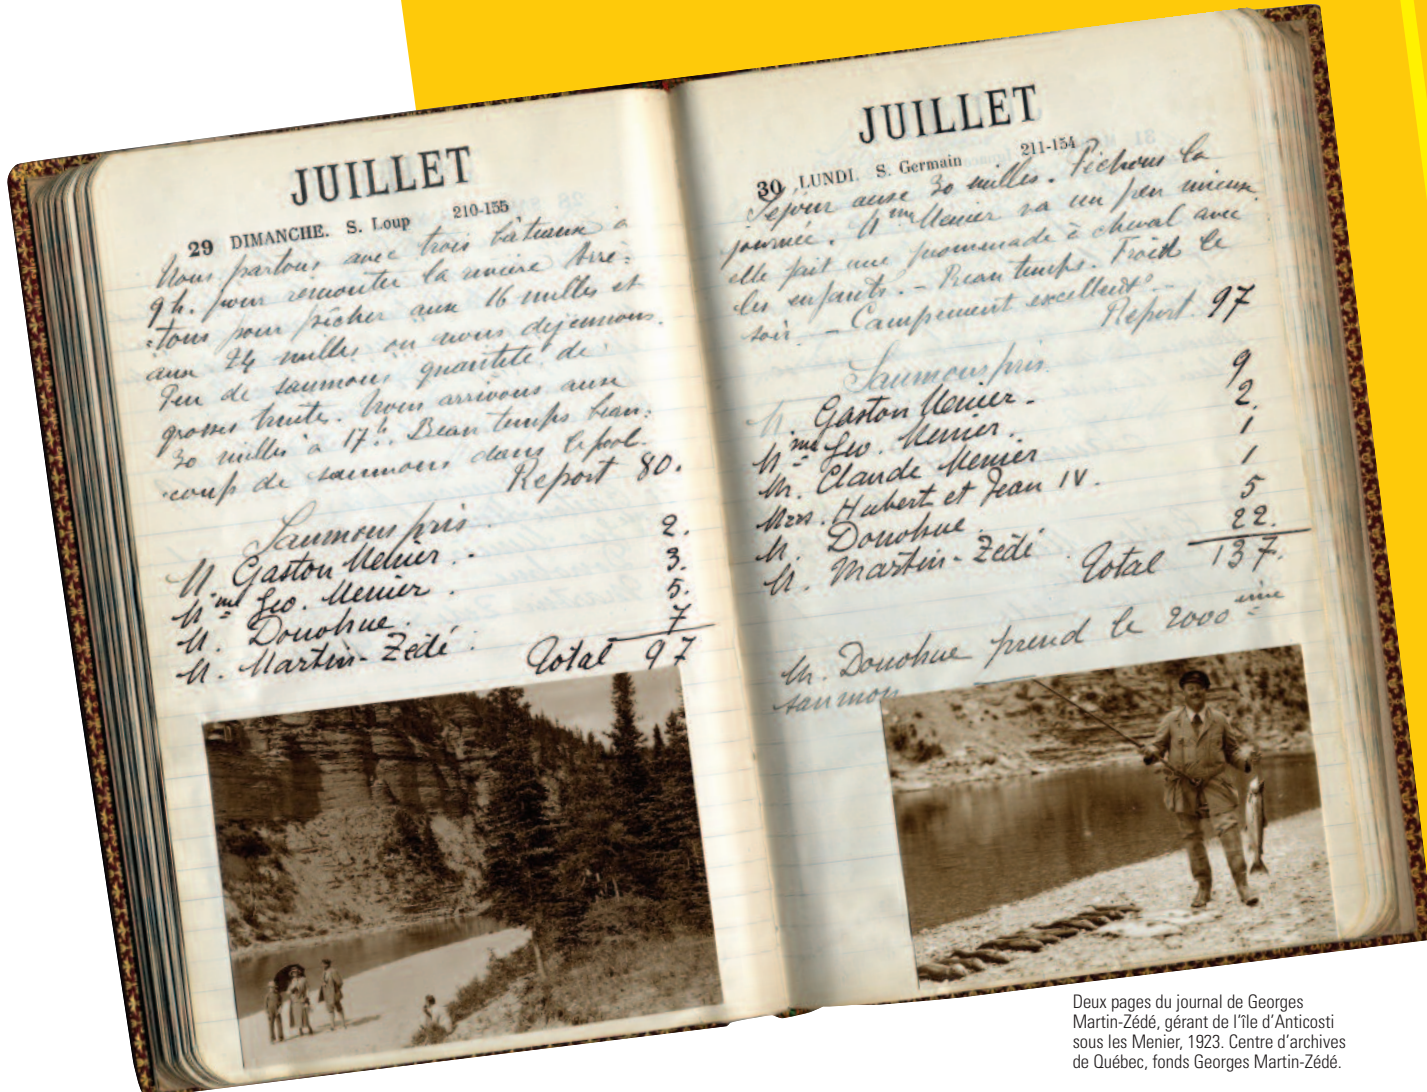 JUILLET
29 DIMANCHE. S. Loup 210-155
Nous partons avec trois bateaux à
9 h. pour remonter la rivière Arrê=
=tons pour pêcher aux 16 milles et
aux 24 milles ou nous dejeunons.
Peu de saumons quantité de
grosses truite. Nous arrivons aux
30 milles à 17 h. Beau temps beau=
=coup de saumons dans le pool.
Report 80.
Saumons pris.
M. Gaston Menier. 2.
Mme Geo. Menier. 3.
M. Donohue. 5.
M. Martin-Zédé. 7
Total 97
JUILLET
30 LUNDI. S. Germain . 211-154
Séjour aux 30 milles. Pêchons la
journée. Mme Menier va un peu mieux
elle fait une promenade à cheval avec
les enfants. - Beau temps. Froid le
soir - Campement excellent. -
Report. 97
Saumons pris.
M. Gaston Menier - 9
Mme Geo. Menier. 2.
M. Claude Menier 1
Mrs. Hubert et Jean IV. 1
M. Donohue. 5
M. Martin-Zédé. 22.
Total 137.
M. Donohue prend le 2000ème
saumon
Deux pages du journal de Georges
Martin-Zédé, gérant de l'île d'Anticosti
sous les Menier, 1923. Centre d'archives
de Québec, fonds Georges Martin-Zédé.